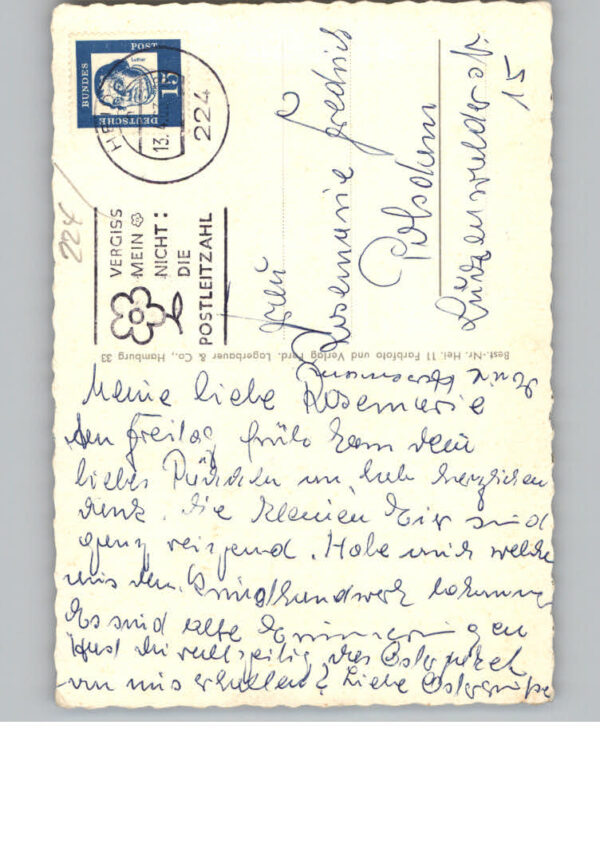 BUNDES
POST
DEUTSCHE
Luther
15
13.4
224
224
VERGISS
MEIN
NICHT:
DIE
POSTLEITZAHL
Frau
Rosemarie Friedrich
Potsdam
Luckenwalder St.
15
Best.-Nr. Hei. 11 Farbfoto und Verlag Ferd. Lagerbauer & Co., Hamburg 33
Meine liebe Rosemarie
Am Freitag früh kam dein
liebes Päckchen an, hab herzlichen
Dank. Die kleinen Eier sind
ganz reizend. Habe auch welche
aus dem
Es sind alte Erinnerungen
Hast du rechtzeitig das Osterpaket
von uns erhalten? Liebe Ostergrüße